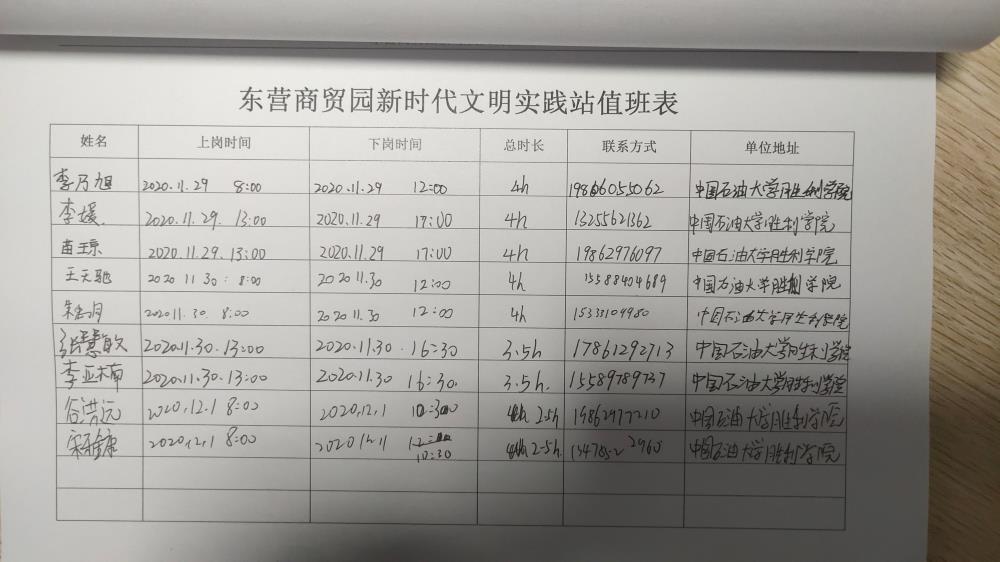 东营商贸园新时代文明实践站值班表
姓名 上岗时间 下岗时间 总时长 联系方式 单位地址
李乃旭 2020.11.29 8:00 2020.11.29 12:00 4h 19866055062 中国石油大学胜利学院
李媛 2020.11.29. 13:00 2020.11.29 17:00 4h 13255621362 中国石油大学胜利学院
苗琼 2020.11.29.13:00 2020.11.29 17:00 4h 19862976097 中国石油大学胜利学院
王天驰 2020 11 30: 8:00 2020 11.30 12:00 4h 15588404689 中国石油大学胜利学院
2020 11.30. 8:00 2020 11.30 12:00 4h 15333104980 中国石油大学胜利学院
张慧敏 2020.11.30.13:00 2020.11.30.16:30 3.5h 17861292713 中国石油大学胜利学院
李亚楠 2020.11.30.13:00 2020.11.30 16:30. 3.5h. 15589789737 中国石油大学胜利学院
谷洪远 2020,12.1 8:00 2020,12,1 10:30 2.5h 19862977210 中国石油大学胜利学院
2020,12,1 8:00 2020 12.1 10:30 2.5h. 中国石油大学胜利学院